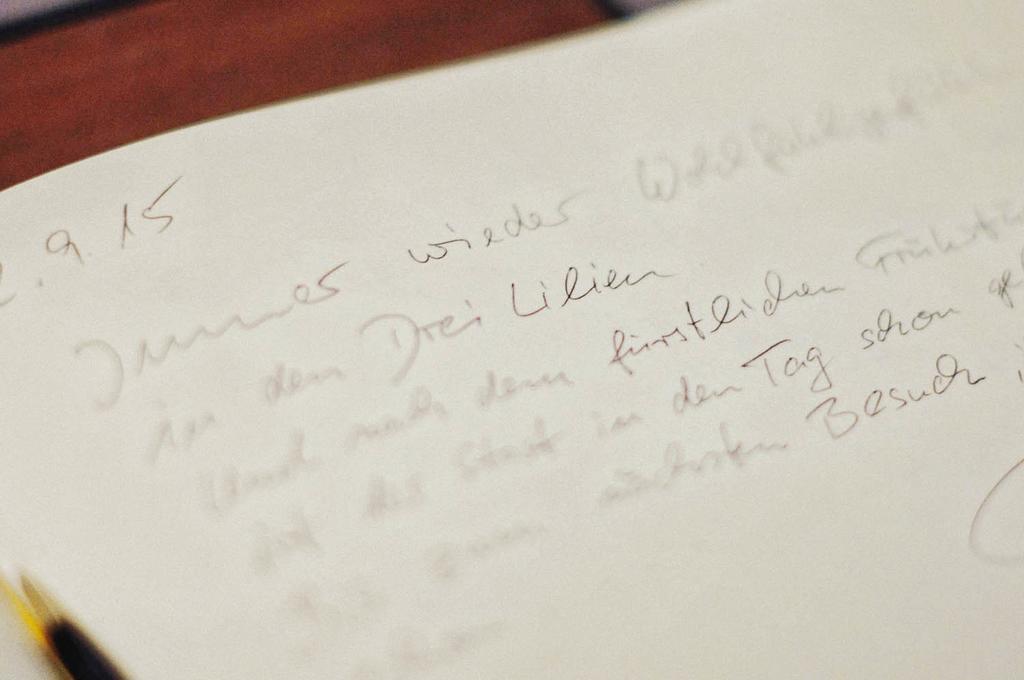 2.9.15
Immer wieder Wohlfühl
in den Drei Lilien
Und nach dem fürstlichen Frühstü
ist der Start in den Tag schon ge
Bis zum nächsten Besuch i